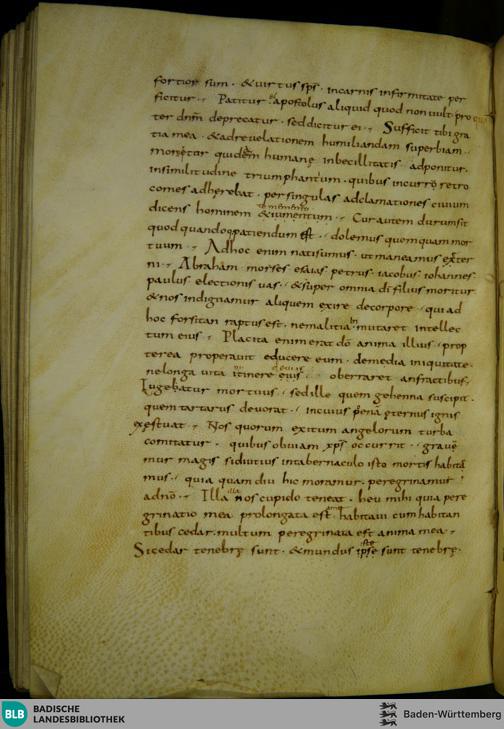 fortior sum · & uirtus sp̅s · in carnis infirmitate per
ficitur · Patitur & apostolus aliquid quod non uult pro quo
ter dn̅m deprecatur · sed dicitur ei · Sufficit tibi gra
tia mea · & ad reuelationem humiliandam superbiam ·
monetur quidem humanę inbecillitatis adponitur ·
in similitudine triumphantum · quibus in curru retro
comes adherebat · per singulas adclamationes ciuium
dicens hominem Cur autem durum sit
quod quandoq; patiendum est · dolemus quemquam mor
tuum · Ad hoc enim nati sumus · ut maneamus ęter
ni · Abraham moyses esaias petrus · iacobus · iohannes
paulus electionis uas · & super omnia di̅ filius moritur
& nos indignamur aliquem exire de corpore · qui ad
hoc forsitan raptus est · ne malitia inmutaret intellec
tum eius · Placita enim erat do̅ anima illius · prop
terea properauit educere eum · de media iniquitate ·
ne longa uita itinere oberraret anfractibus ·
Lugebatur mortuus · sed ille quem gehenna suscipit ·
quem tartarus deuorat · in cuius pęna ęternus ignis
exęstuat · Nos quorum exitum angelorum turba
comitatur · quibus obuiam xp̅s occurrit · graue
mur magis si diutius in tabernaculo isto mortis habita
mus · quia quam diu hic moramur · peregrinamur
ad no̅ · Illa nos cupido teneat · heu mihi quia pere
grinatio mea prolongata est · habitaui cum habitan
tibus cedar · multum peregrinata est anima mea ·
Si cedar tenebrę sunt · & mundus ipse sunt tenebrę ·
BLB BADISCHE
LANDESBIBLIOTHEK
Baden-Württemberg